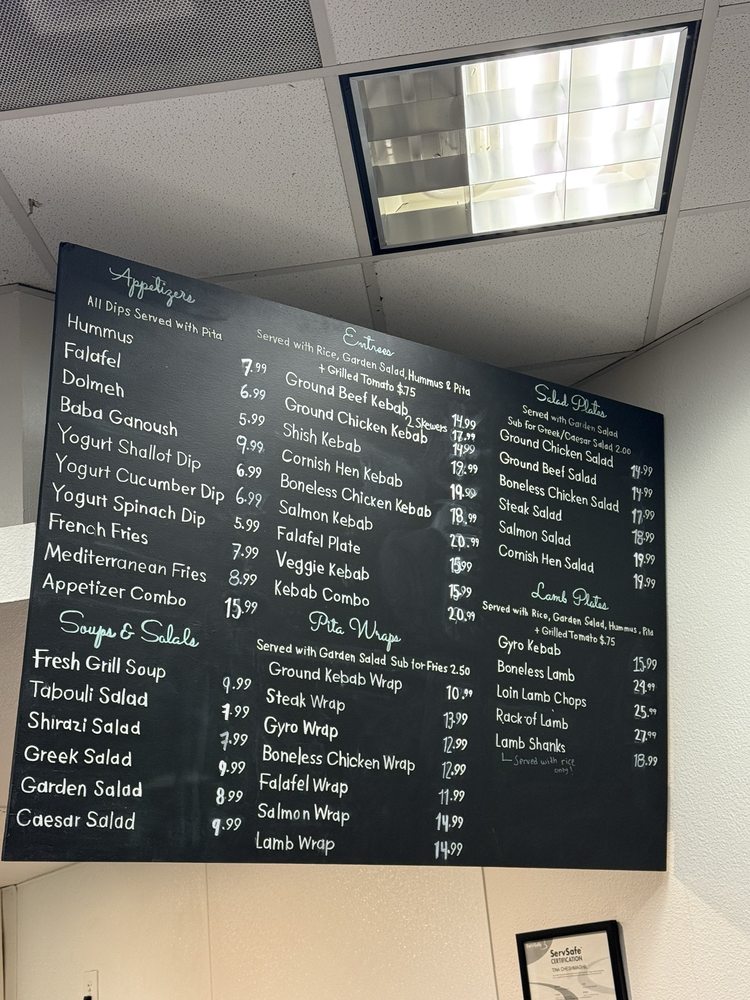 Appetizers
All Dips Served with Pita
Hummus 7.99
Falafel 6.99
Dolmeh 5.99
Baba Ganoush 9.99
Yogurt Shallot Dip 6.99
Yogurt Cucumber Dip 6.99
Yogurt Spinach Dip 5.99
French Fries 7.99
Mediterranean Fries 8.99
Appetizer Combo 15.99
Soups & Salads
Fresh Grill Soup 9.99
Tabouli Salad 7.99
Shirazi Salad 7.99
Greek Salad 9.99
Garden Salad 8.99
Caesar Salad 9.99
Entrees
Served with Rice, Garden Salad, Hummus & Pita
+ Grilled Tomato $.75
Ground Beef Kebab 14.99
2 Skewers 17.99
Ground Chicken Kebab 14.99
Shish Kebab 19.99
Cornish Hen Kebab 19.99
Boneless Chicken Kebab 18.99
Salmon Kebab 20.99
Falafel Plate 15.99
Veggie Kebab 15.99
Kebab Combo 20.99
Pita Wraps
Served with Garden Salad Sub for Fries 2.50
Ground Kebab Wrap 10.99
Steak Wrap 13.99
Gyro Wrap 12.99
Boneless Chicken Wrap 12.99
Falafel Wrap 11.99
Salmon Wrap 14.99
Lamb Wrap 14.99
Salad Plates
Served with Garden Salad
Sub for Greek/Caesar Salad 2.00
Ground Chicken Salad 14.99
Ground Beef Salad 14.99
Boneless Chicken Salad 17.99
Steak Salad 18.99
Salmon Salad 19.99
Cornish Hen Salad 19.99
Lamb Plates
Served with Rice, Garden Salad, Hummus, Pita
+ Grilled Tomato $.75
Gyro Kebab 15.99
Boneless Lamb
Loin Lamb Chops 25.99
Rack of Lamb 27.99
Lamb Shanks 18.99
Served with rice
only!
ServSafe
CERTIFICATION